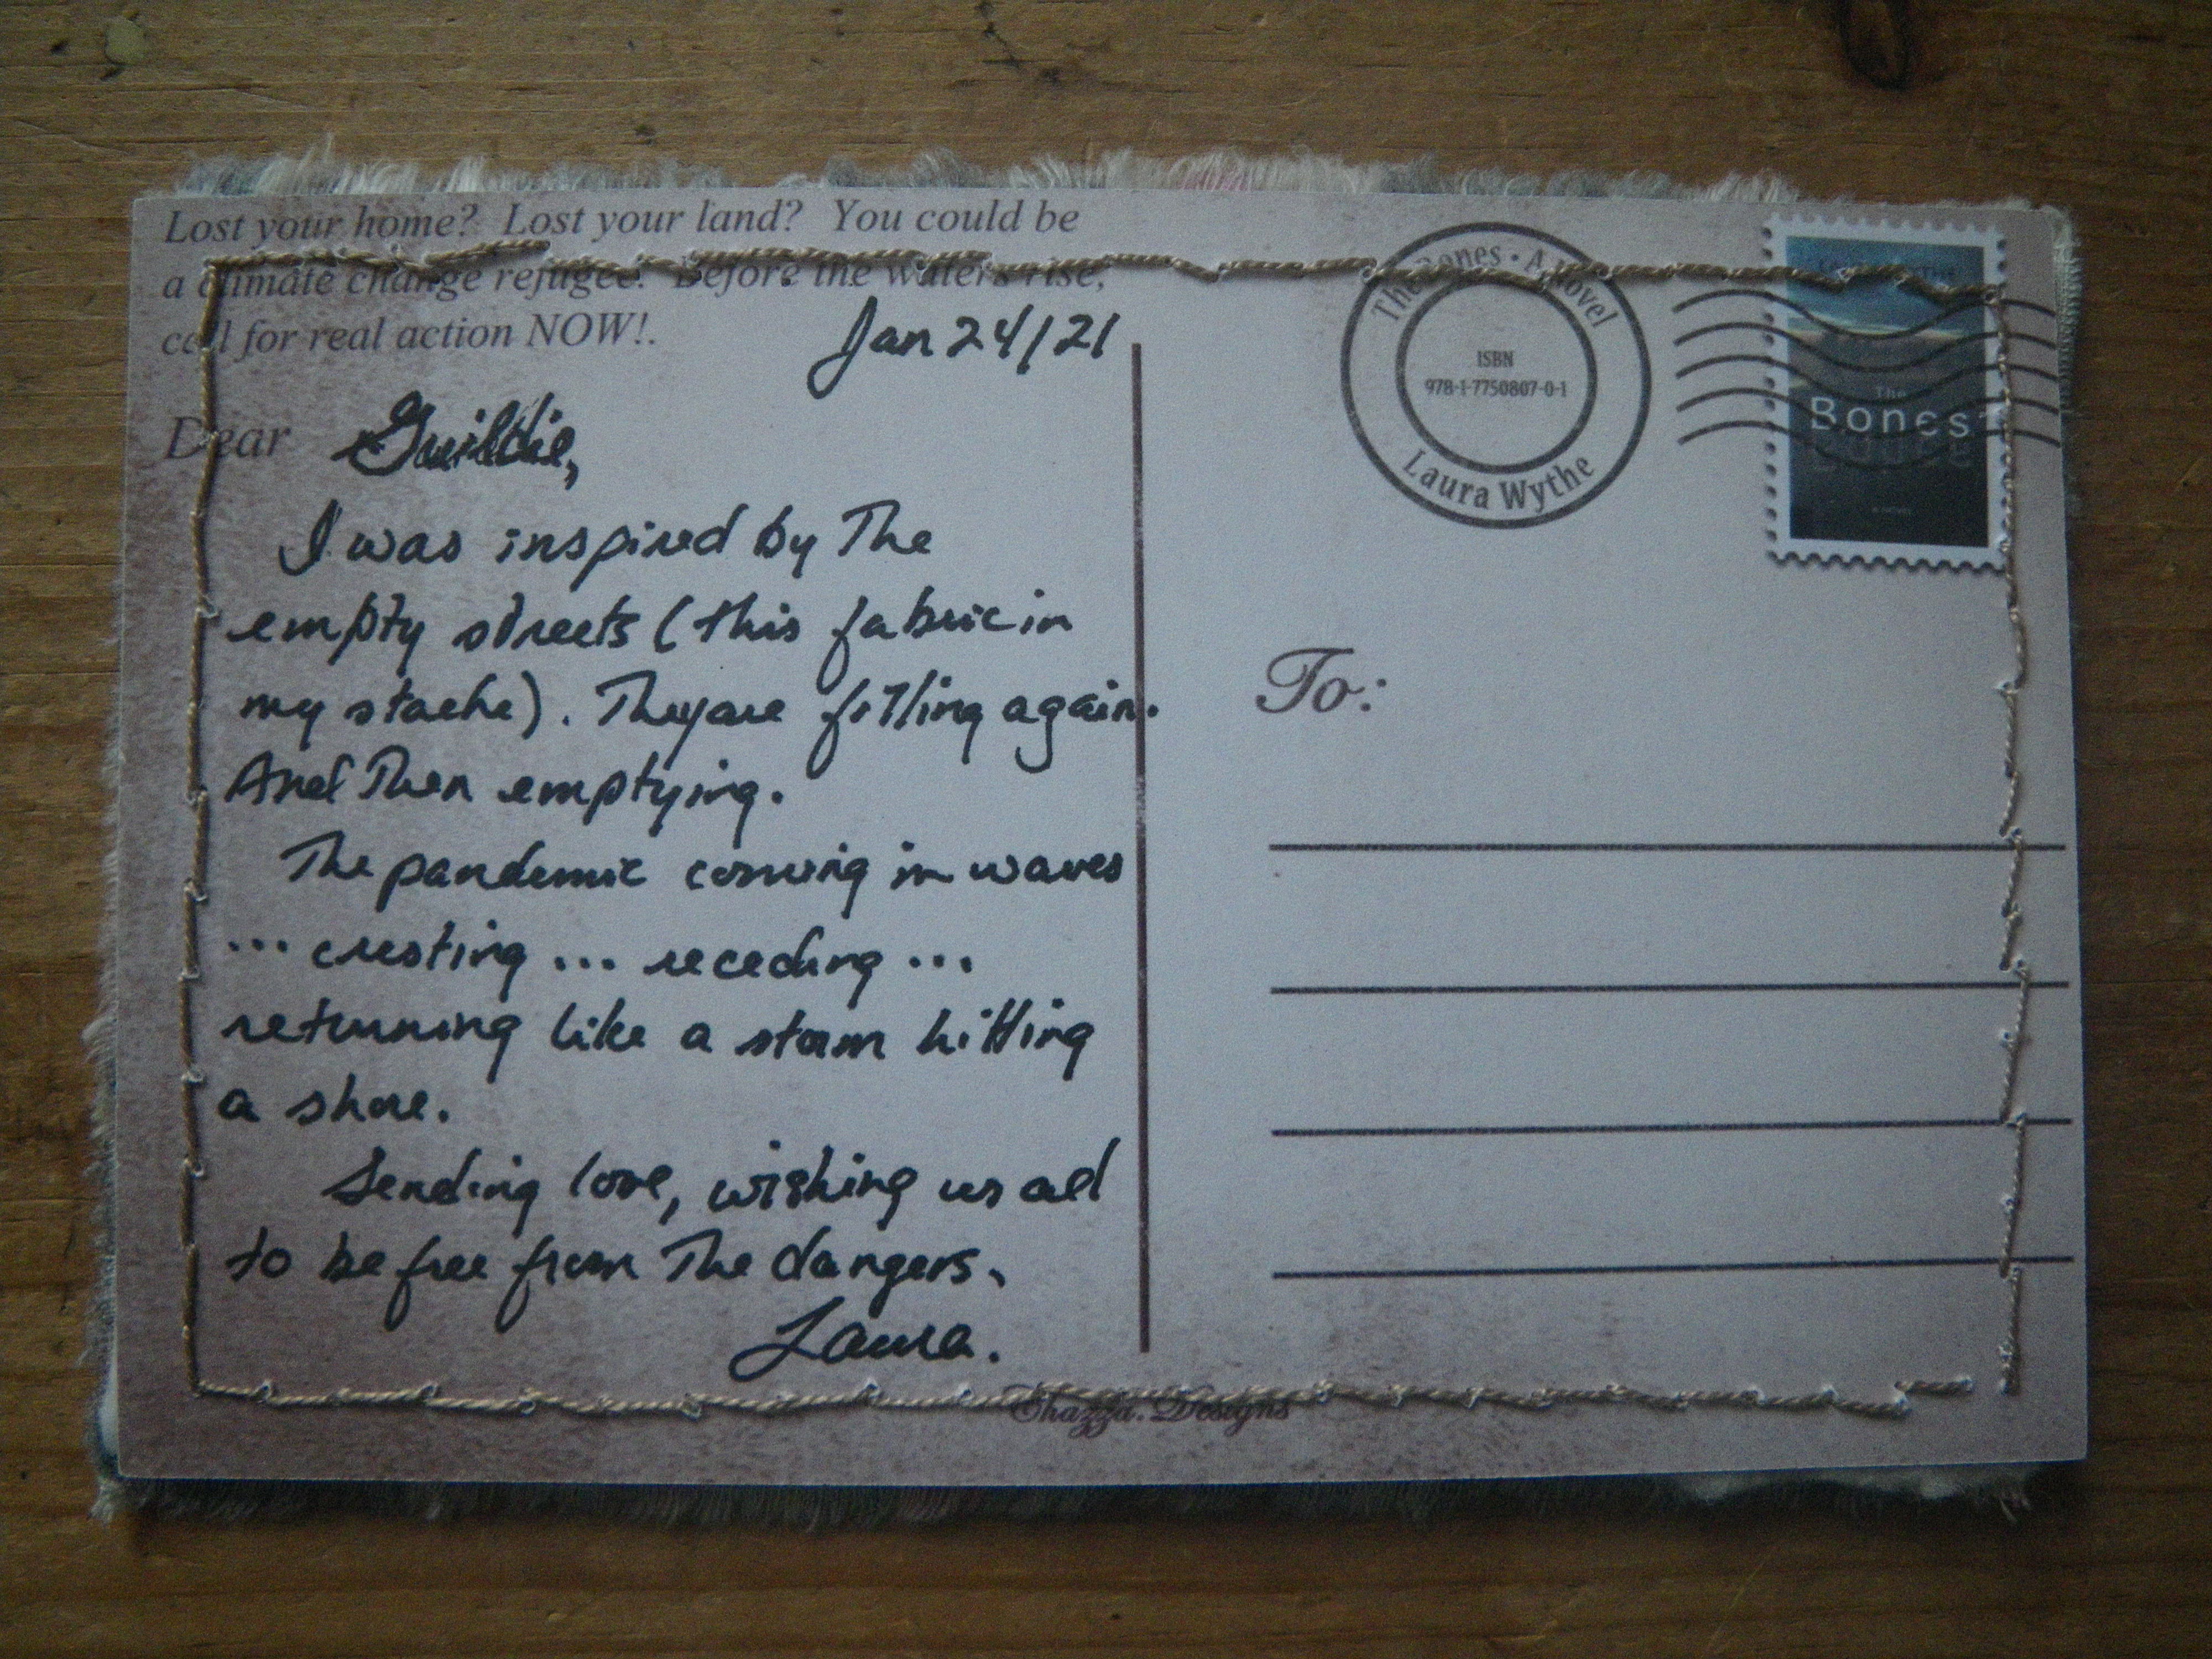 Lost your home? Lost your land? You could be
a climate change refugee. Before the waters rise,
call for real action NOW!.
Jan 24/21
Dear Guildie,
I was inspired by The
empty streets (this fabric in
my stache). They are filling again.
And Then emptying.
The pandemic coming in waves
... cresting ... receding ...
returning like a storm hitting
a shore.
Sending love, wishing us all
to be free from The dangers.
Laura.
The Bones • A Novel
ISBN
978-1-7750807-0-1
Laura Wythe
The
Bones
To:
Shazza.Designs